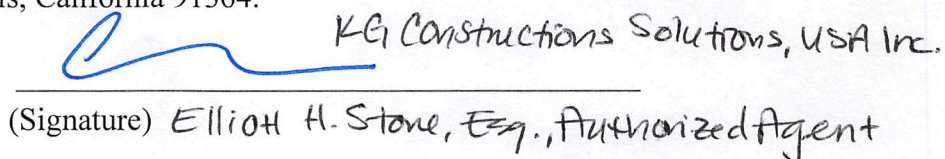 s, California 91364.
KG Constructions Solutions, USA Inc.
(Signature) Elliott H. Stone, Esq., Authorized Agent